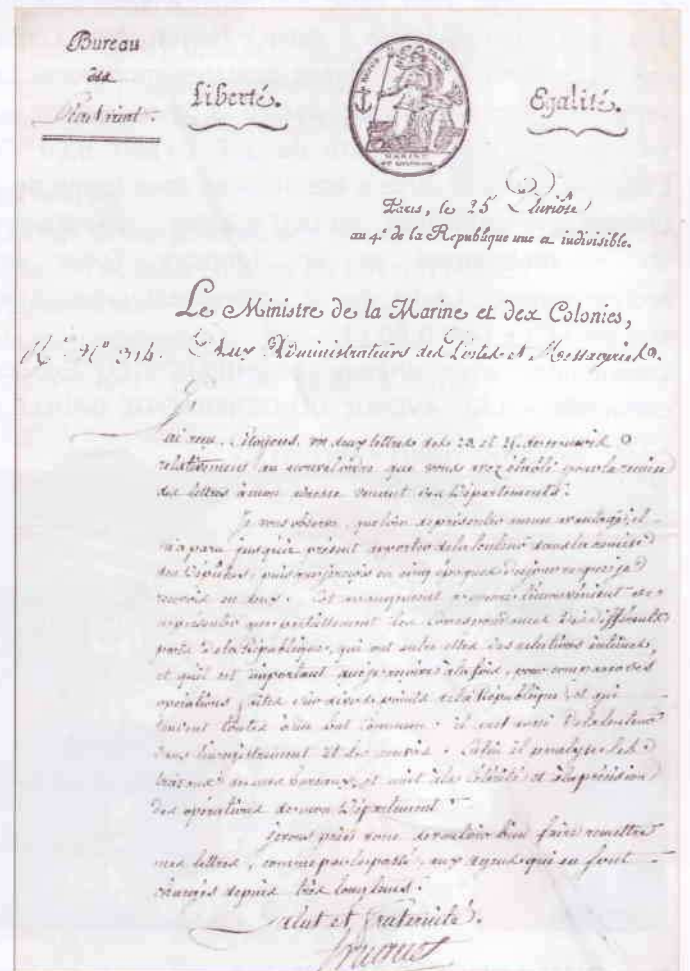 Bureau
des
Liberté.
Egalité.
MARINE
Paris, le 25 Pluviôse
au 4.e de la République une et indivisible.
Le Ministre de la Marine et des Colonies,
N.o 314. Aux Administrateurs des Postes et Messageries.
J'ai reçu, Citoyens, vos deux lettres des 23 et 24 de ce mois
relativement au nouvel ordre que vous avez établi pour la remise
des lettres à mon adresse venant des Départements.
Je vous observe, que loin de présenter aucun avantage, il
m'a paru jusqu'à présent apporter de la lenteur dans la remise
des Dépêches, puisque je reçois en cinq époques du jour ce que je
recevois en deux. Cet arrangement a encore l'inconvénient de
présenter que partiellement les Correspondances des différents
ports de la République, qui ont entre elles des relations intimes,
et qu'il est important que je reçoive à la fois, pour
opérations faites sur divers points de la République, et qui
tendent toutes à un but commun. il met aussi de la lenteur
dans l'enregistrement et les renvois. Enfin il paralyse les
travaux de mes Bureaux, et nuit à la célérité et à la précision
des opérations de mon Département.
Je vous prie donc de vouloir bien faire remettre
mes lettres, comme par le passé, aux agens qui en sont
chargés depuis très longtems.
Salut et fraternité.
Truguet